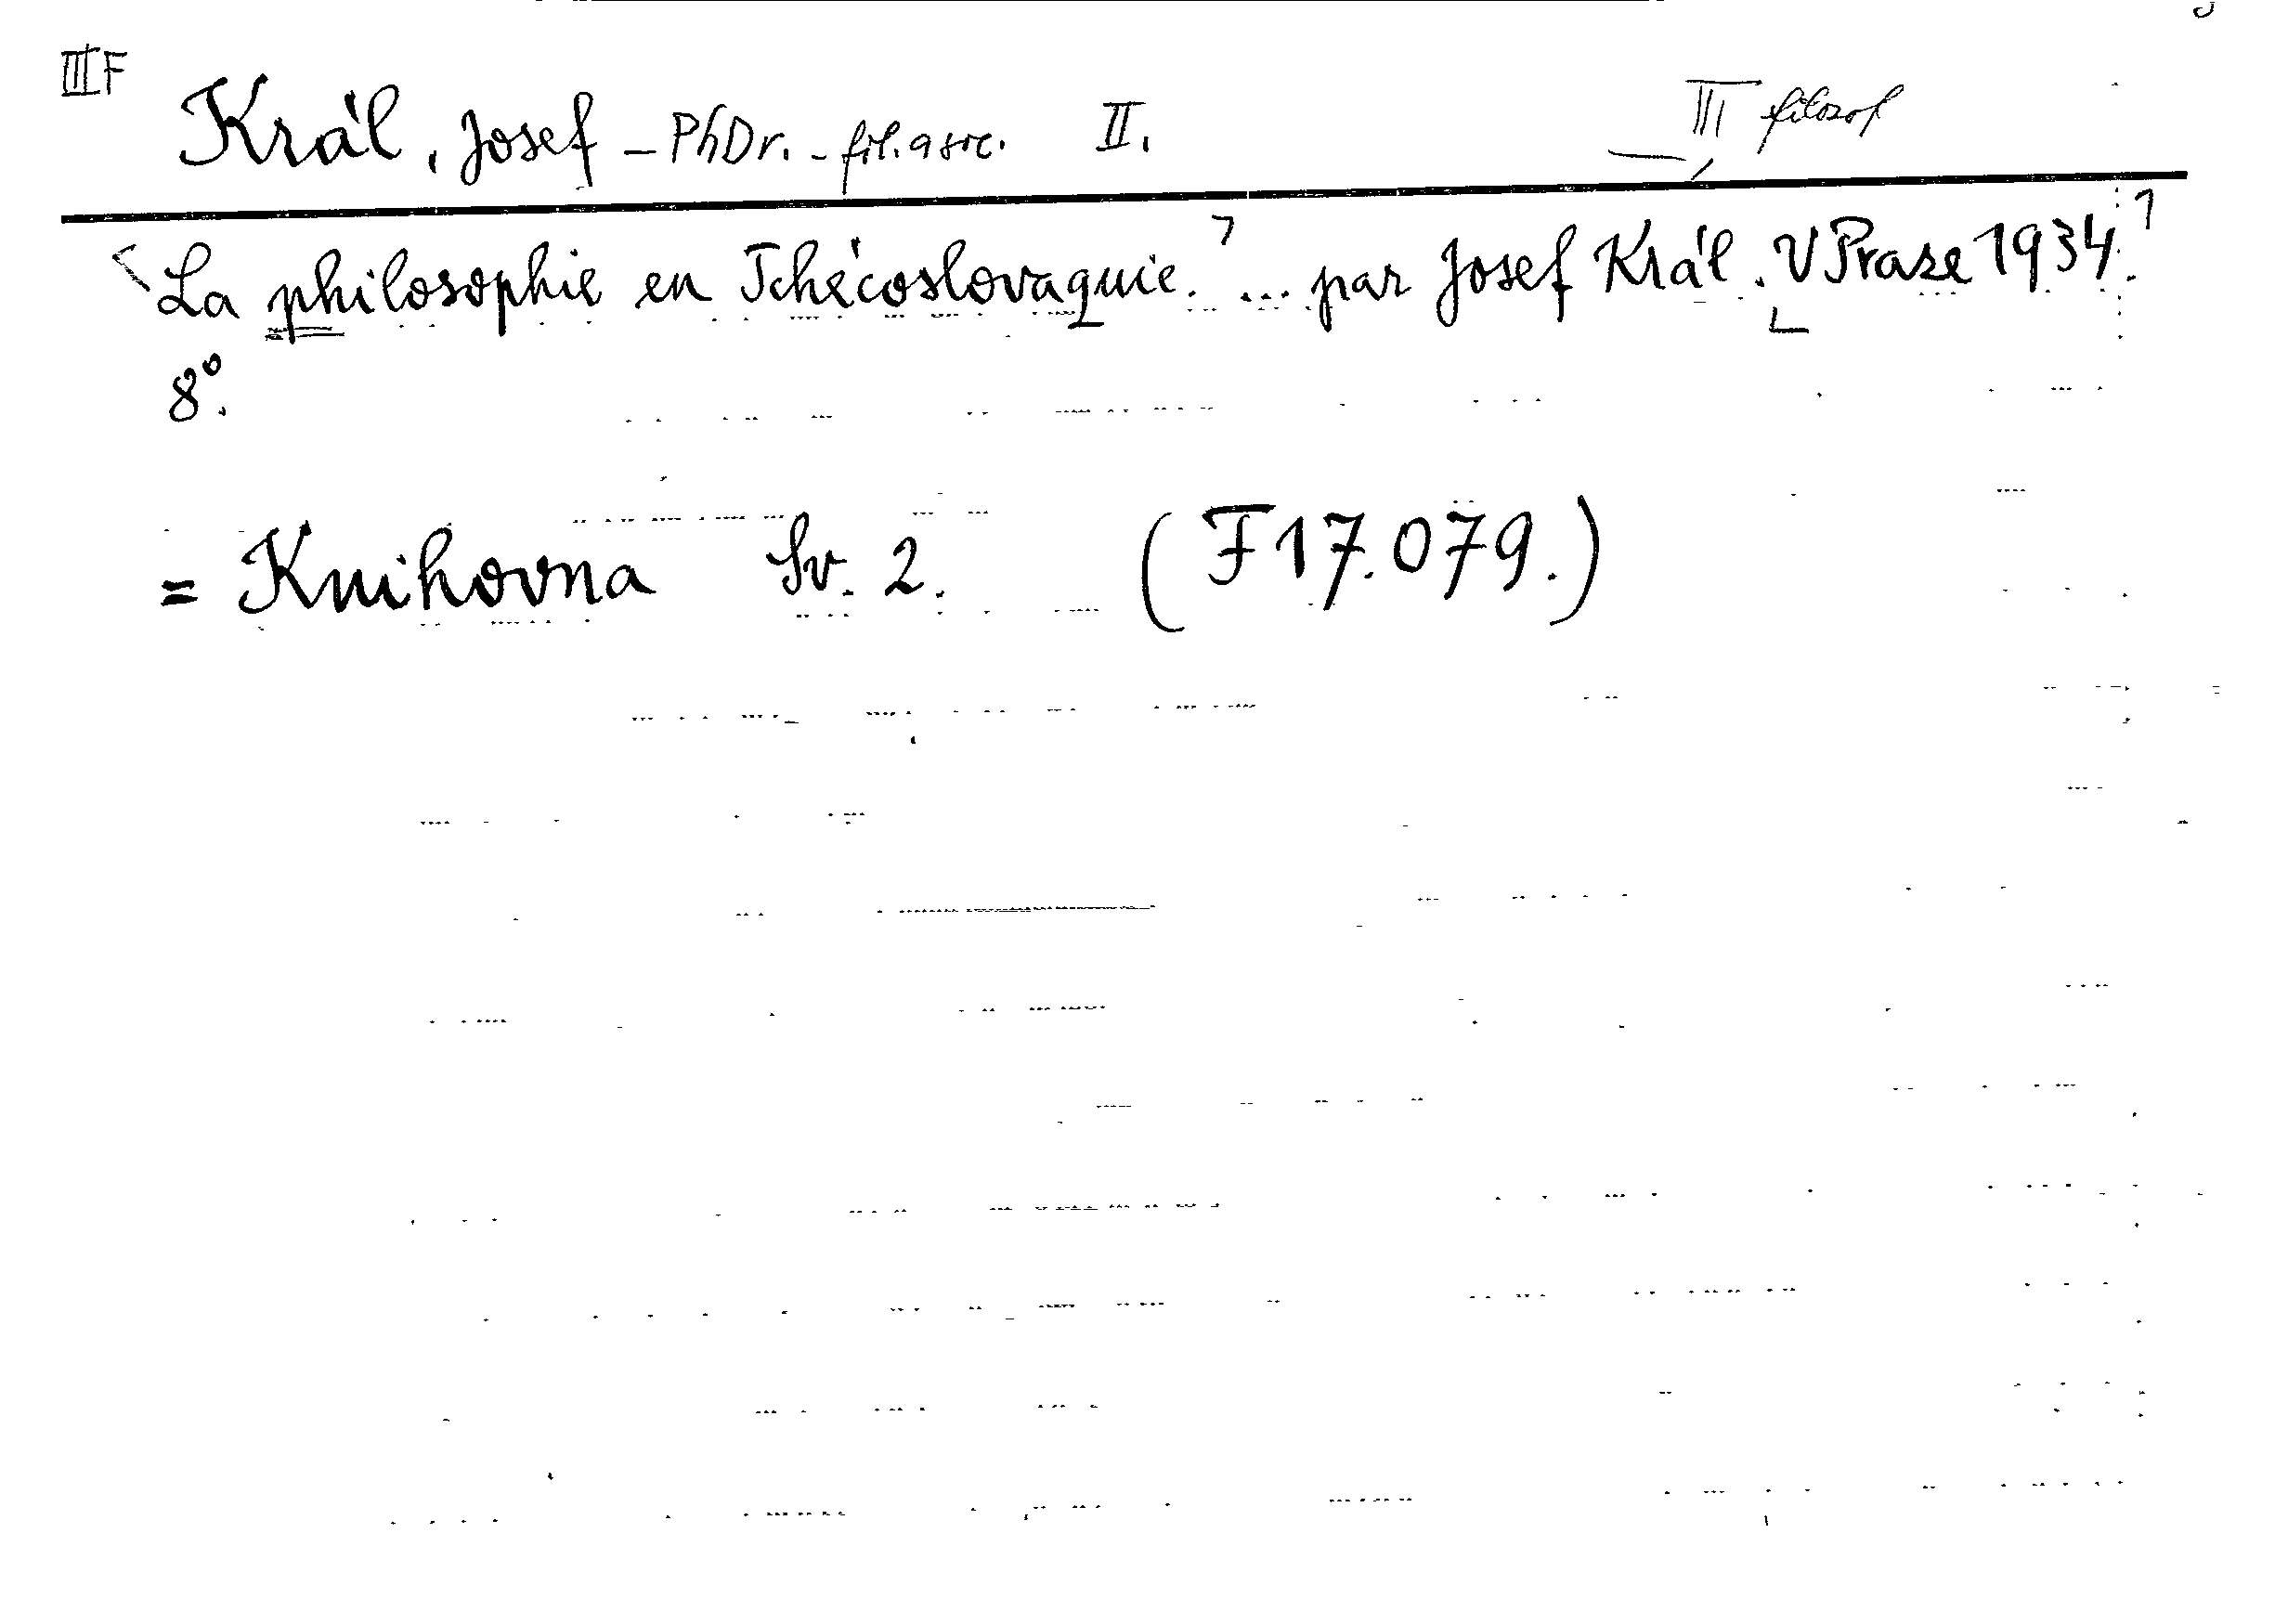 III F
Král, Josef – PhDr. – fil. a soc. II. III filosof
La philosophie en Tchécoslovaquie. ... par Josef Král. V Praze 1934.
8°.
= Knihovna Sv. 2. (F 17.079.)